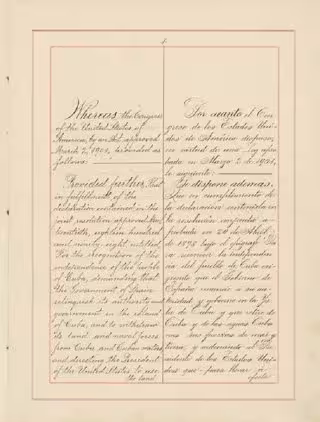 Whereas the Congress
of the United States of
America, by an Act approved
March 2, 1901, provided as
follows:
Provided further, That
in fulfillment of the
declaration contained in the
joint resolution approved April
twentieth, eighteen hundred
and ninety-eight, entitled,
"For the recognition of the
independence of the people
of Cuba, demanding that
the Government of Spain
relinquish its authority and
government in the island
of Cuba, and to withdraw
its land and naval forces
from Cuba and Cuban waters,
and directing the President
of the United States to use
the land
Por cuanto el Con-
greso de los Estados Uni-
dos de América dispuso,
en virtud de una Ley apro-
bada en Marzo 2 de 1901,
lo siguiente:
Se dispone además,
Que en cumplimiento de
la declaración contenida en
la resolución conjunta a-
probada en 20 de Abril
de 1898 bajo el epígrafe "Pa-
ra reconocer la independen-
cia del pueblo de Cuba exi-
giendo que el Gobierno de
España renuncie a su au-
toridad y gobierno en la Is-
la de Cuba y que retire de
Cuba y de las aguas Cuba-
nas sus fuerzas de mar y
tierra, y ordenando al Pre-
sidente de los Estados Uni-
dos que para llevar á
efecto